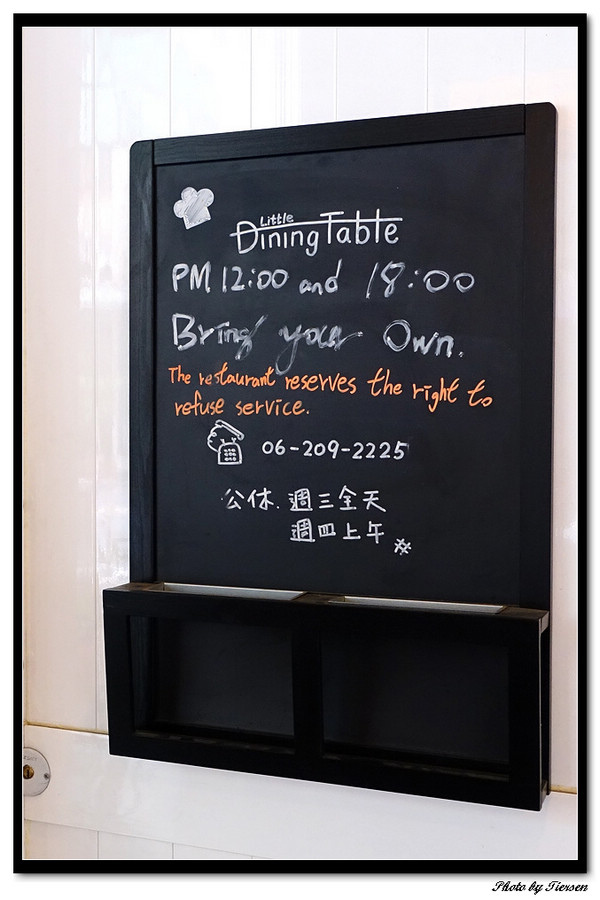 Little
Dining Table
PM 12:00 and 18:00
Bring your Own.
The restaurant reserves the right to
refuse service.
06-209-2225
公休. 週三全天
週四上午
Photo by Tiersen